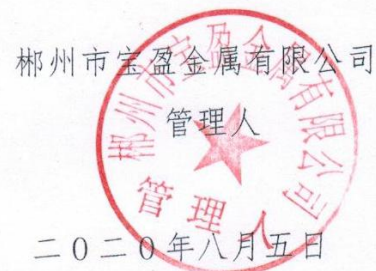 郴州市宝盈金属有限公司
管理人
二0二0年八月五日
郴州市宝盈金属有限公司
管理人